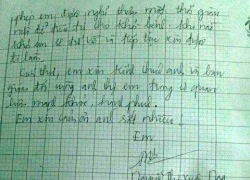 phép em được nghỉ thêm một thời gian
nữa để điều trị cho khỏi bệnh. Khi nào
khỏi em sẽ trở về và tiếp tục xin được
đi làm.
Cuối thư, em xin kính chúc anh và ban
giám đốc cùng anh chị em trong cơ quan
luôn mạnh khỏe, hạnh phúc.
Em xin cảm ơn anh rất nhiều!
Em
Nguyễn Thị